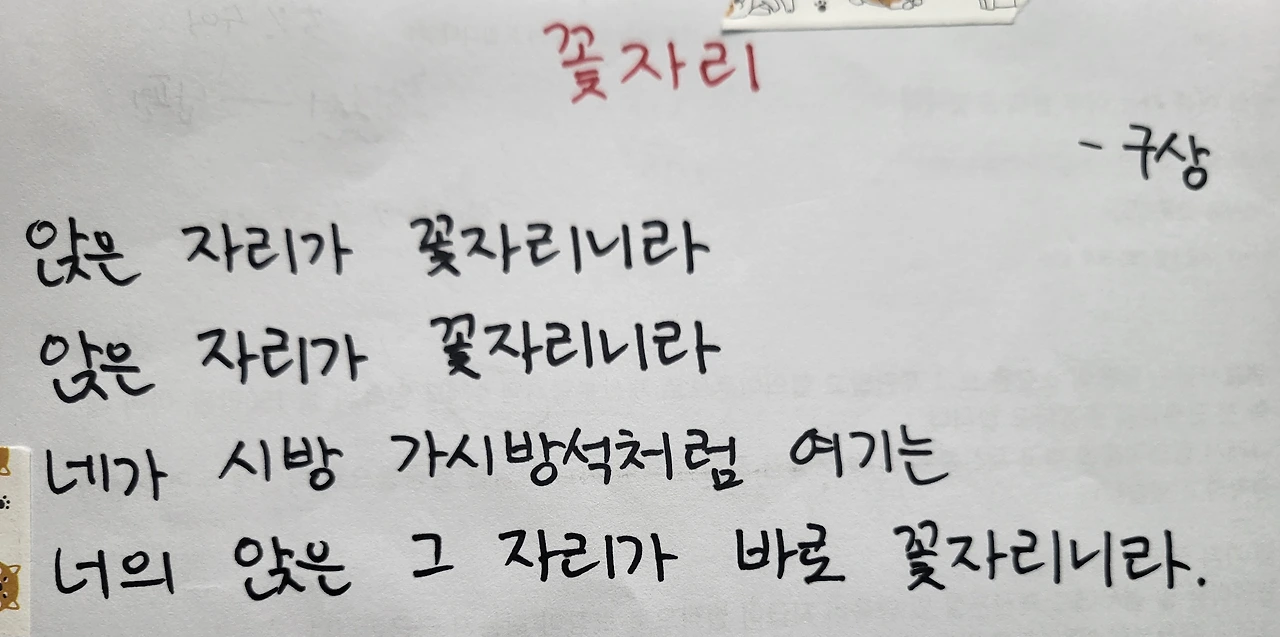 꽃자리
- 구상
앉은 자리가 꽃자리니라
앉은 자리가 꽃자리니라
네가 시방 가시방석처럼 여기는
너의 앉은 그 자리가 바로 꽃자리니라.